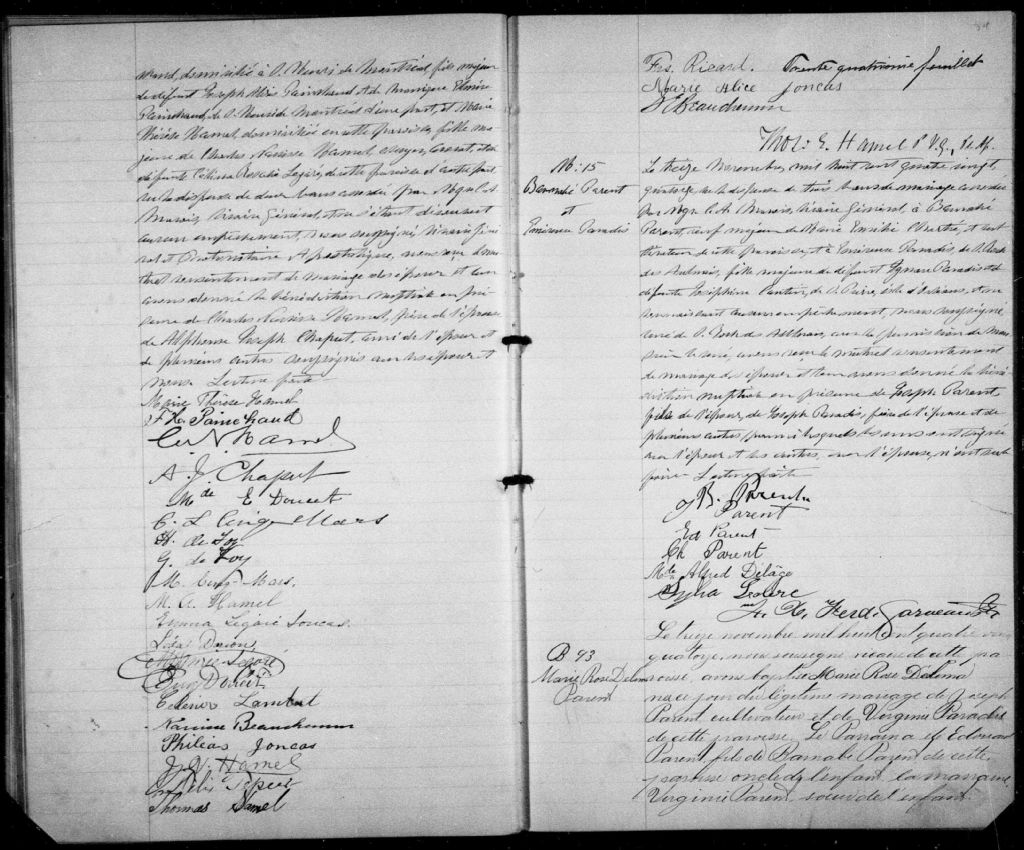 chaud, domicilié à S. Henri de Montréal, fils majeur
de défunt Joseph Painchaud et de Monique
Painchaud, de S. Henri de Montréal d'une part, et Marie
Thérèse Hamel, domiciliée en cette paroisse, fille ma
jeure de Charles Narcisse Hamel, et de
défunte Rosalie Légaré, de cette paroisse d'autre part
vu la dispense de deux bans accordée par Mgr C. A.
Marois, vicaire Général, et ne s'étant découvert
aucun empêchement, nous soussigné, Vicaire Géné
ral et Protonotaire Apostolique, avons reçu leur mu
tuel consentement de mariage et leur
avons donné la bénédiction nuptiale en pré
sence de Charles Narcisse Hamel, père de l'épouse
de Alphonse Joseph Chaput, ami de l'époux et
de plusieurs autres soussignés avec les époux et
nous. Lecture faite
Marie Thérèse Hamel
F. X. Painchaud
C. N. Hamel
A. J. Chaput
Mde E Doucet
C. L. Cinq-Mars
H. de Foy
G. de Foy
M. Cinq-Mars.
M. A. Hamel
Emma Légaré Joncas.
Lida Dorion
Légaré
Doucet
Lambert
Narcisse Beauchemin
Philéas Joncas
J. N. Hamel
Thomas Hamel
Frs. Ricard. Trente quatrième feuillet
Marie Alice Joncas
Beauchemin
Thos. E. Hamel P. V. G., P. Ap.
M: 15
Barnabé Parent
et
Paradis
Le treize Novembre, mil huit cent quatre vingt
quatorze, vu la dispense de trois bans de mariage accordée
par Mgr C. A. Marois, vicaire Général, à Barnabé
Parent, veuf majeur de Marie Emélie Chartré, et cul
tivateur de cette paroisse, et à Paradis, de S. Roch
des Aulnais, fille majeure de défunt Ignace Paradis et de
défunte Joséphine Cantin, de S. Pierre, île d'Orléans, et ne
connaissant aucun empêchement, nous soussigné,
curé de S. Roch des Aulnais, avec la permission de Mon
sieur le curé, avons reçu le mutuel consentement
de mariage des époux et leur avons donné la béné
diction nuptiale en présence de Joseph Parent,
fils de l'époux, de Joseph Paradis, frère de l'épouse et de
plusieurs autres parmi lesquels les uns ont signé
avec l'époux et les autres, avec l'épouse, n'ont su le
faire. Lecture faite
B. Parent
J Parent
Ed Parent
Ch Parent
Mde Alfred Délâge
Sylva Leclerc
F. X. Ferd. Garneau Ptre
B 93
Marie Rose Delima
Parent
Le treize novembre mil huit cent quatre vingt
quatorze, nous soussigné vicaire de cette pa
roisse, avons baptisé Marie Rose Delima
née ce jour du légitime mariage de Joseph
Parent cultivateur et de Virginie Paradis
de cette paroisse. Le Parrain a été Edouard
Parent, fils de Barnabé Parent de cette
paroisse oncle de l'enfant, la marraine
Virginie Parent, soeur de l'enfant